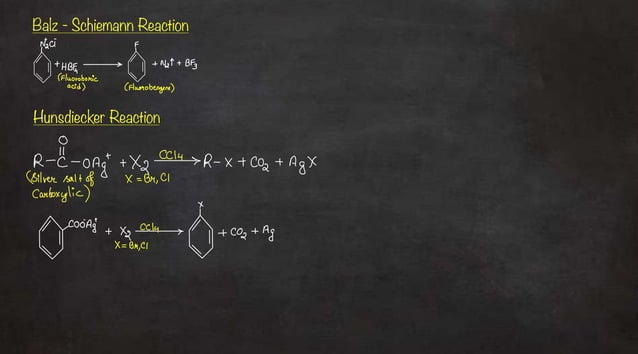 Balz - Schiemann Reaction
N₂Cl
F
+ HBF₄ ⟶ + N₂↑ + BF₃
(Fluoroboric acid)
(Fluorobenzene)
Hunsdiecker Reaction
O
R-C-OAg⁺ + X₂ CCl₄ ⟶ R-X + CO₂ + AgX
(Silver salt of Carboxylic)
X = Br, Cl
X
COOAg⁺ + X₂ CCl₄ ⟶ + CO₂ + Ag
X = Br, Cl